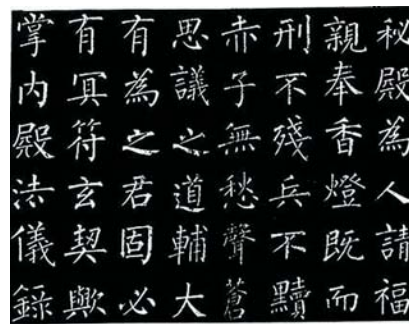 秘殿為人請福
親奉香燈既而
刑不殘兵不黷
赤子無愁聲蒼
思議之道輔大
有為之君固必
有冥符玄契歟
掌內殿法儀錄